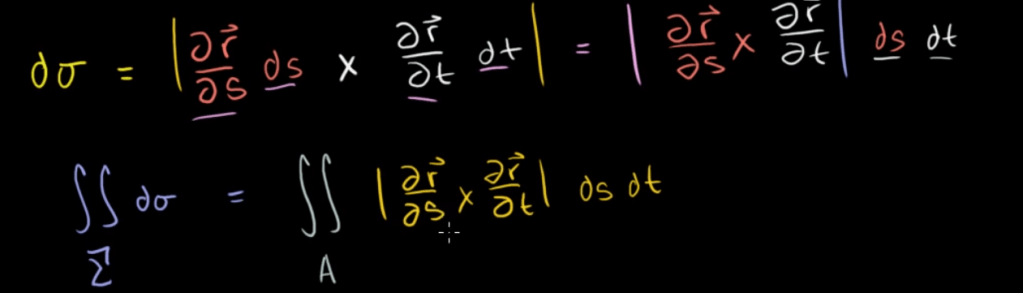 dσ = |∂r⃗/∂s ds × ∂r⃗/∂t dt| = |∂r⃗/∂s × ∂r⃗/∂t| ds dt
∬_Σ dσ = ∬_A |∂r⃗/∂s × ∂r⃗/∂t| ds dt